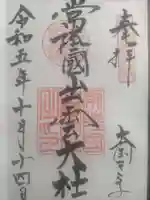 奉拝
常陸國出雲大社
令和五年十月十四日